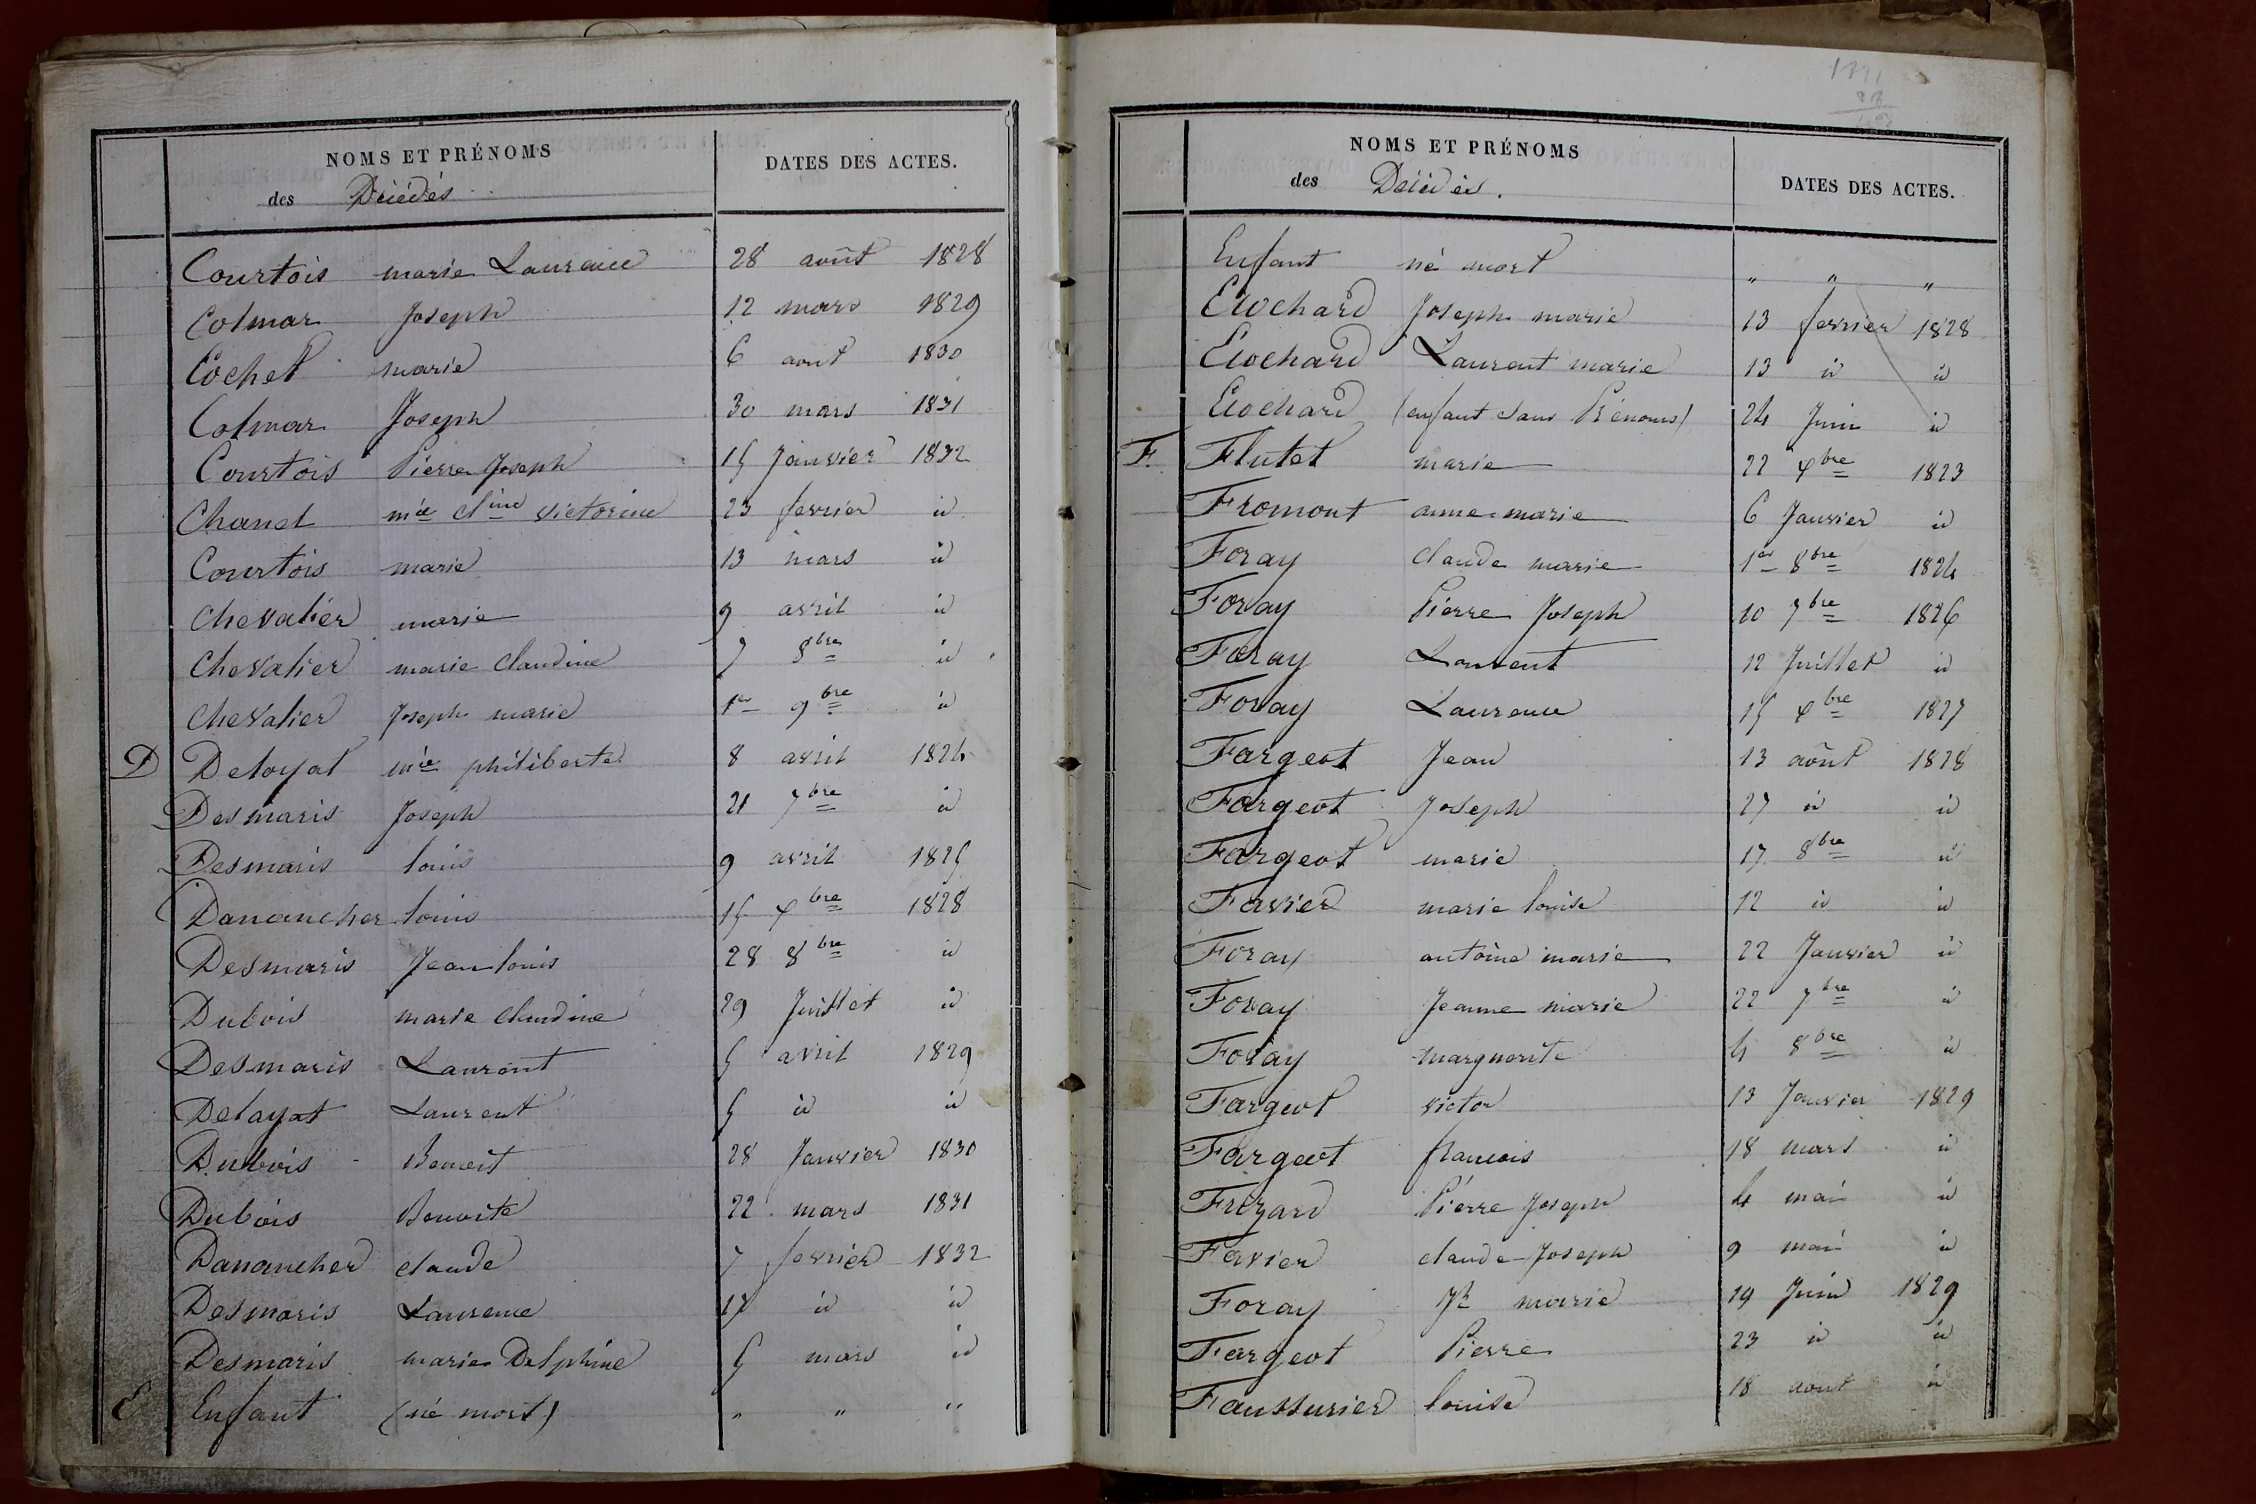 NOMS ET PRÉNOMS
des Décédés
DATES DES ACTES.
Courtois marie Laurence 28 août 1828
Colmar Joseph 12 mars 1829
Cochet marie 6 aout 1830
Colmar Joseph 30 mars 1831
Courtois Pierre Joseph 15 Janvier 1832
Chanel mie Cline victorine 23 fevrier id
Courtois marie 13 mars id
Chevalier marie 9 avril id
Chevalier marie claudine 7 8bre id
Chevalier Joseph marie 1er 9bre id
D Deloyat mie philiberte 8 avril 1824
Desmaris Joseph 21 7bre id
Desmaris louis 9 avril 1825
Danancher louis 15 Xbre 1828
Desmaris Jean louis 28 8bre id
Dubois marie claudine 29 Juillet id
Desmaris Laurent 5 avril 1829
Delayat Laurent 5 id id
Dubois Benoit 28 Janvier 1830
Dubois Benoite 22 mars 1831
Danancher claude 7 fevrier 1832
Desmaris Laurence 17 id id
Desmaris marie Delphine 5 mars id
E Enfant (né mort) " " "
NOMS ET PRÉNOMS
des Décédés.
DATES DES ACTES.
Enfant né mort " " "
Ecochard Joseph marie 13 fevrier 1828
Ecochard Laurent marie 13 id id
Ecochard (enfant sans Prénoms) 24 Juin id
F. Flutet marie 22 Xbre 1823
Fromont anne-marie 6 Janvier id
Foray claude marie 1er 8bre 1824
Foray Pierre Joseph 10 7bre 1826
Foray Laurent 12 Juillet id
Foray Laurence 15 Xbre 1827
Fargeot Jean 13 août 1828
Fargeot Joseph 27 id id
Fargeot marie 17 8bre id
Favier marie louise 12 id id
Foray antoine marie 22 Janvier id
Foray Jeanne marie 22 7bre id
Foray marguerite 4 8bre id
Fargeot victor 13 Janvier 1829
Fargeot francois 18 mars id
Fuzard Pierre Joseph 4 mai id
Favier claude-Joseph 9 mai id
Foray Jh marie 19 Juin 1829
Fargeot Pierre 23 id id
Faussurier louise 18 aout id